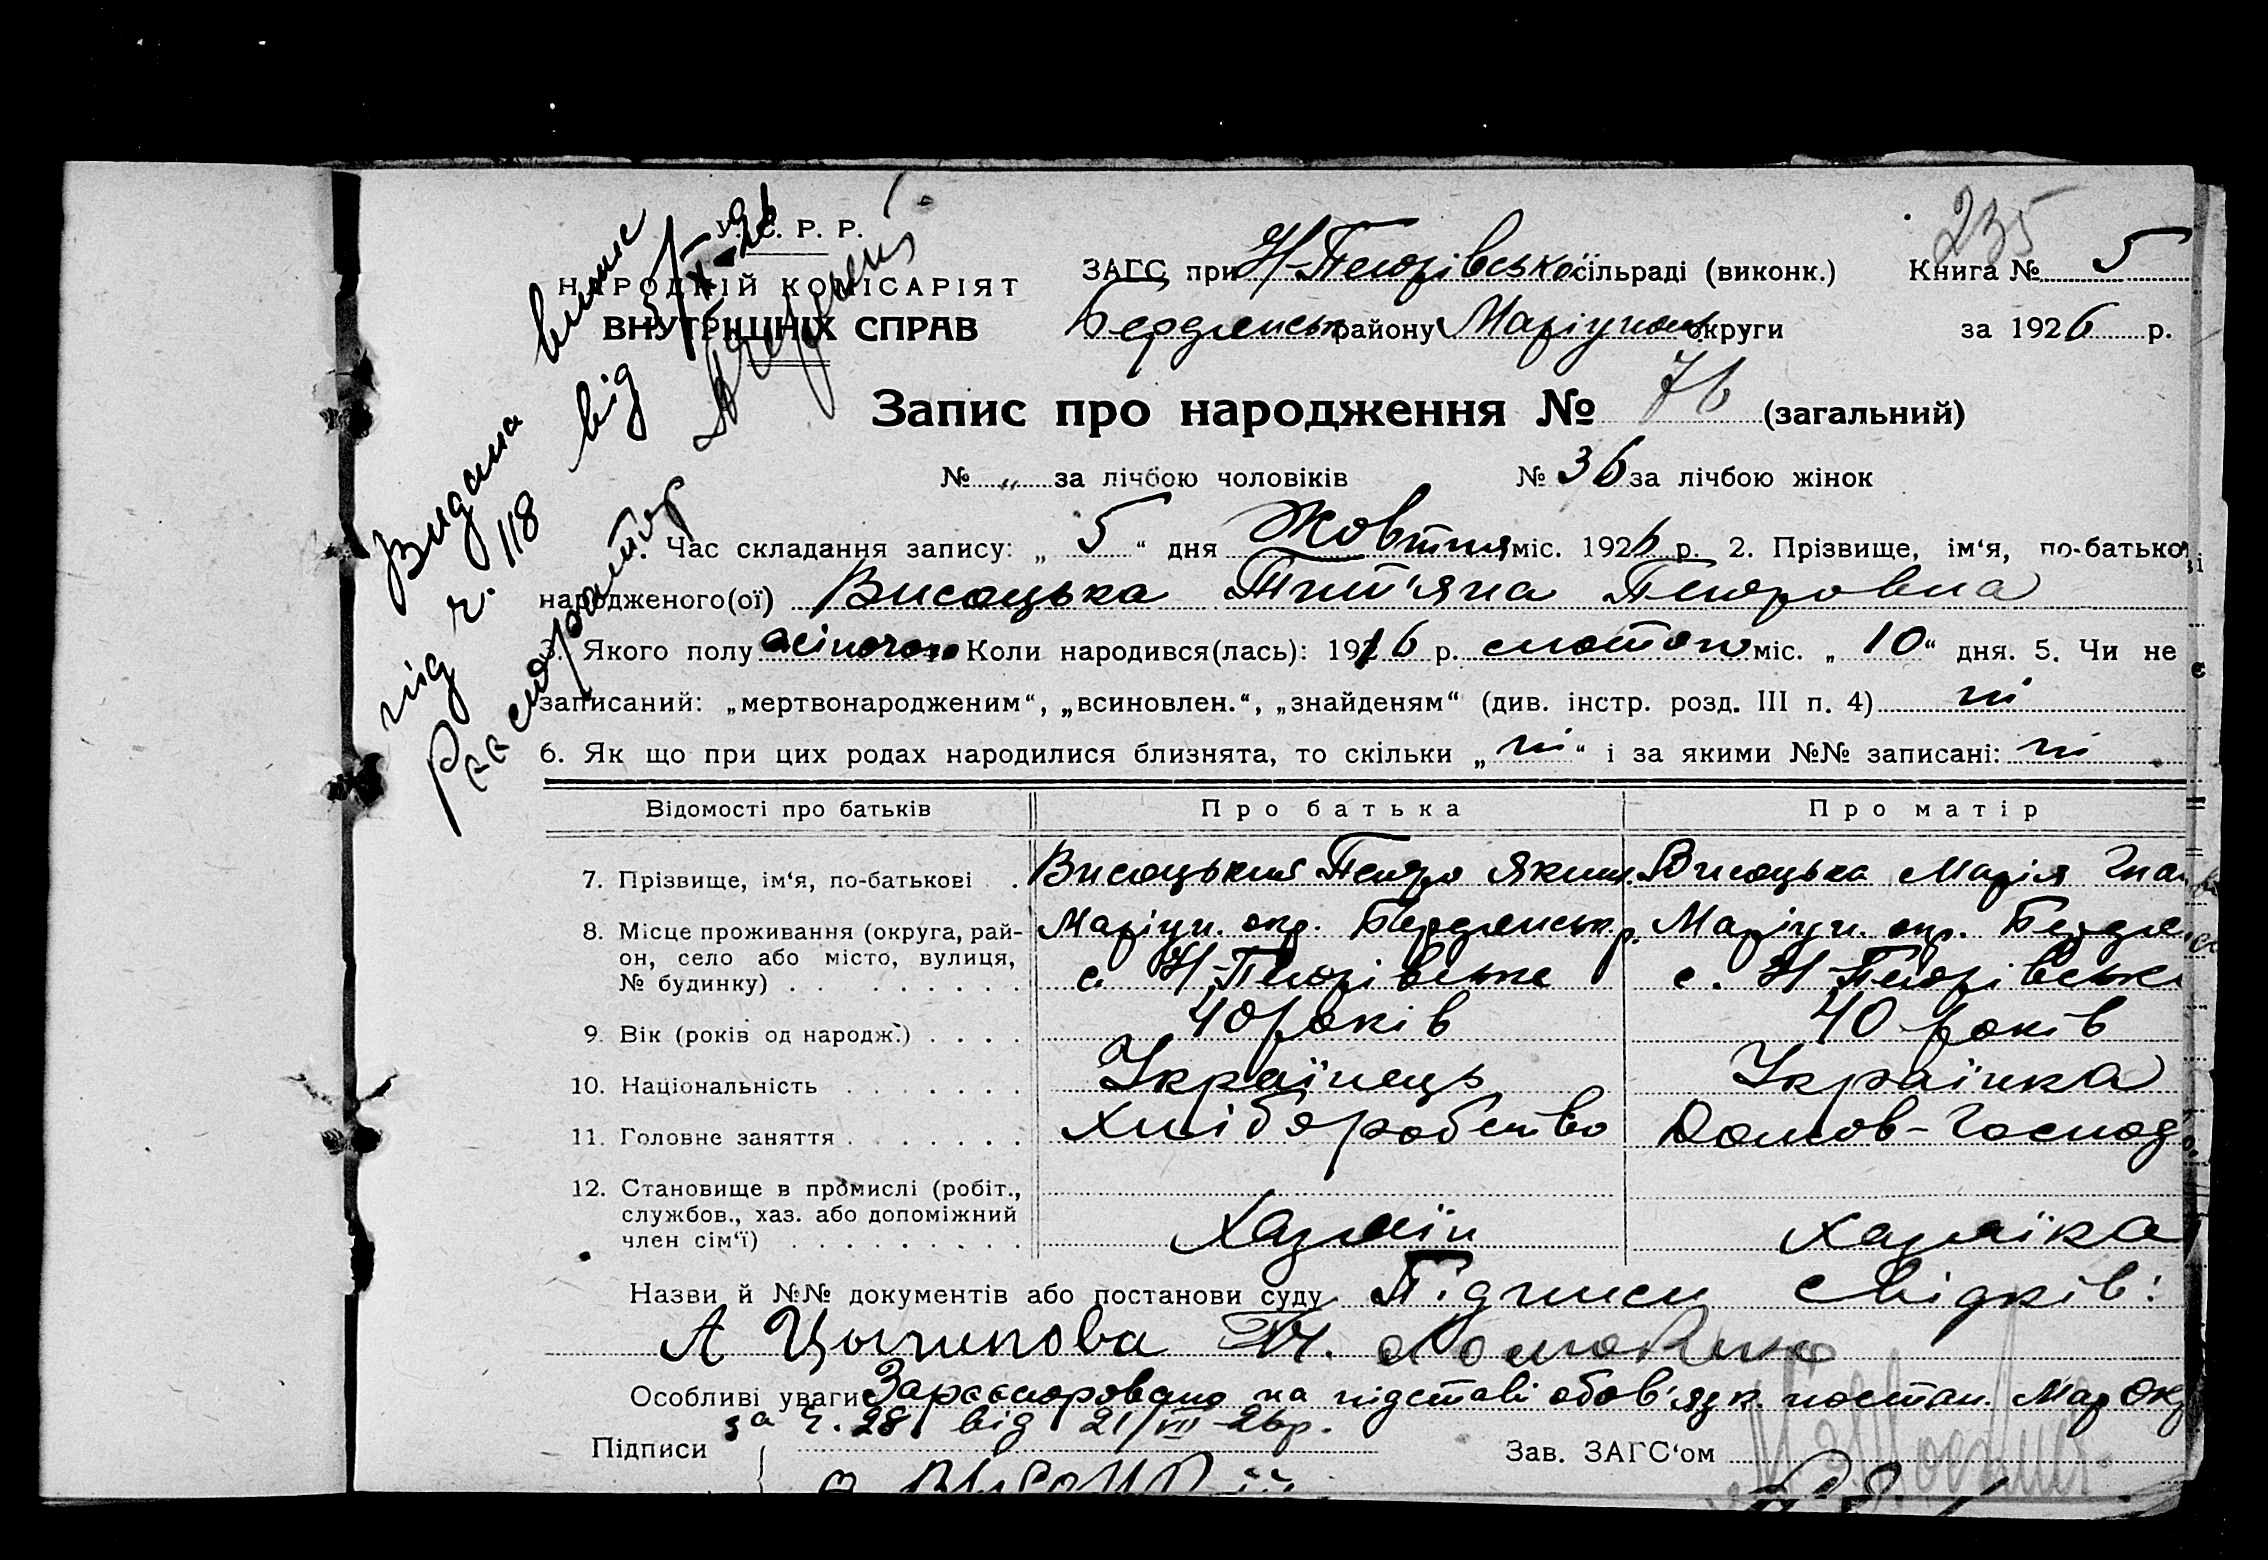 235
У. С. Р. Р.
НАРОДНІЙ КОМІСАРІЯТ
ВНУТРІШНІХ СПРАВ
ЗАГС при Н-Петрівської сільраді (виконк.) Книга № 5
Бердянськ району Маріупольс округи за 1926 р.
Видана виписк
під ч. 118 від 5/X-26
Реєстратор
Запис про народження № 76 (загальний)
№ „ за лічбою чоловіків № 36 за лічбою жінок
1. Час складання запису: „ 5 “ дня Жовтня міс. 1926 р. 2. Прізвище, ім‘я, по-батькові
народженого(ої) Висоцька Тит'яна Петровна
3. Якого полу жіночого Коли народився(лась): 1916 р. лютого міс. „ 10 “ дня. 5. Чи не є
записаний: „мертвонародженим“, „всиновлен.“, „знайденям“ (див. інстр. розд. III п. 4) ні
6. Як що при цих родах народилися близнята, то скільки „ ні “ і за якими №№ записані: ні
Відомості про батьків Про батька Про матір
7. Прізвище, ім‘я, по-батькові . Висоцький Петро Яким. Висоцька Марія Гна
8. Місце проживання (округа, рай- Маріуп. окр. Бердянськ р. Маріуп. окр. Бердя
он, село або місто, вулиця, с. Н-Петрівське с. Н-Петрівськ
№ будинку) . . . . . . . . .
9. Вік (років од народж.) . . . . 40 років 40 років
10. Національність . . . . . . . Українець Українка
11. Головне заняття . . . . . . . Хліборобство Домов-господ
12. Становище в промислі (робіт.,
службов., хаз. або допоміжний Хазяїн Хазяїка
член сім‘ї) . . . . . . . . .
Назви й №№ документів або постанови суду Підписи свідків:
А Цыгипова
Особливі уваги Зареєстровано на підставі обов'язк. постан. Мар Окр
за ч. 28 від 21/VII-26р.
Підписи Зав. ЗАГС‘ом